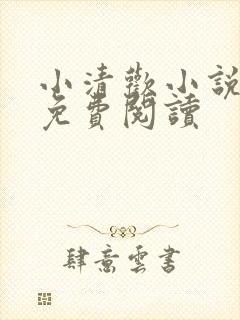 小清歡小說
免費閱讀
肆意雲書